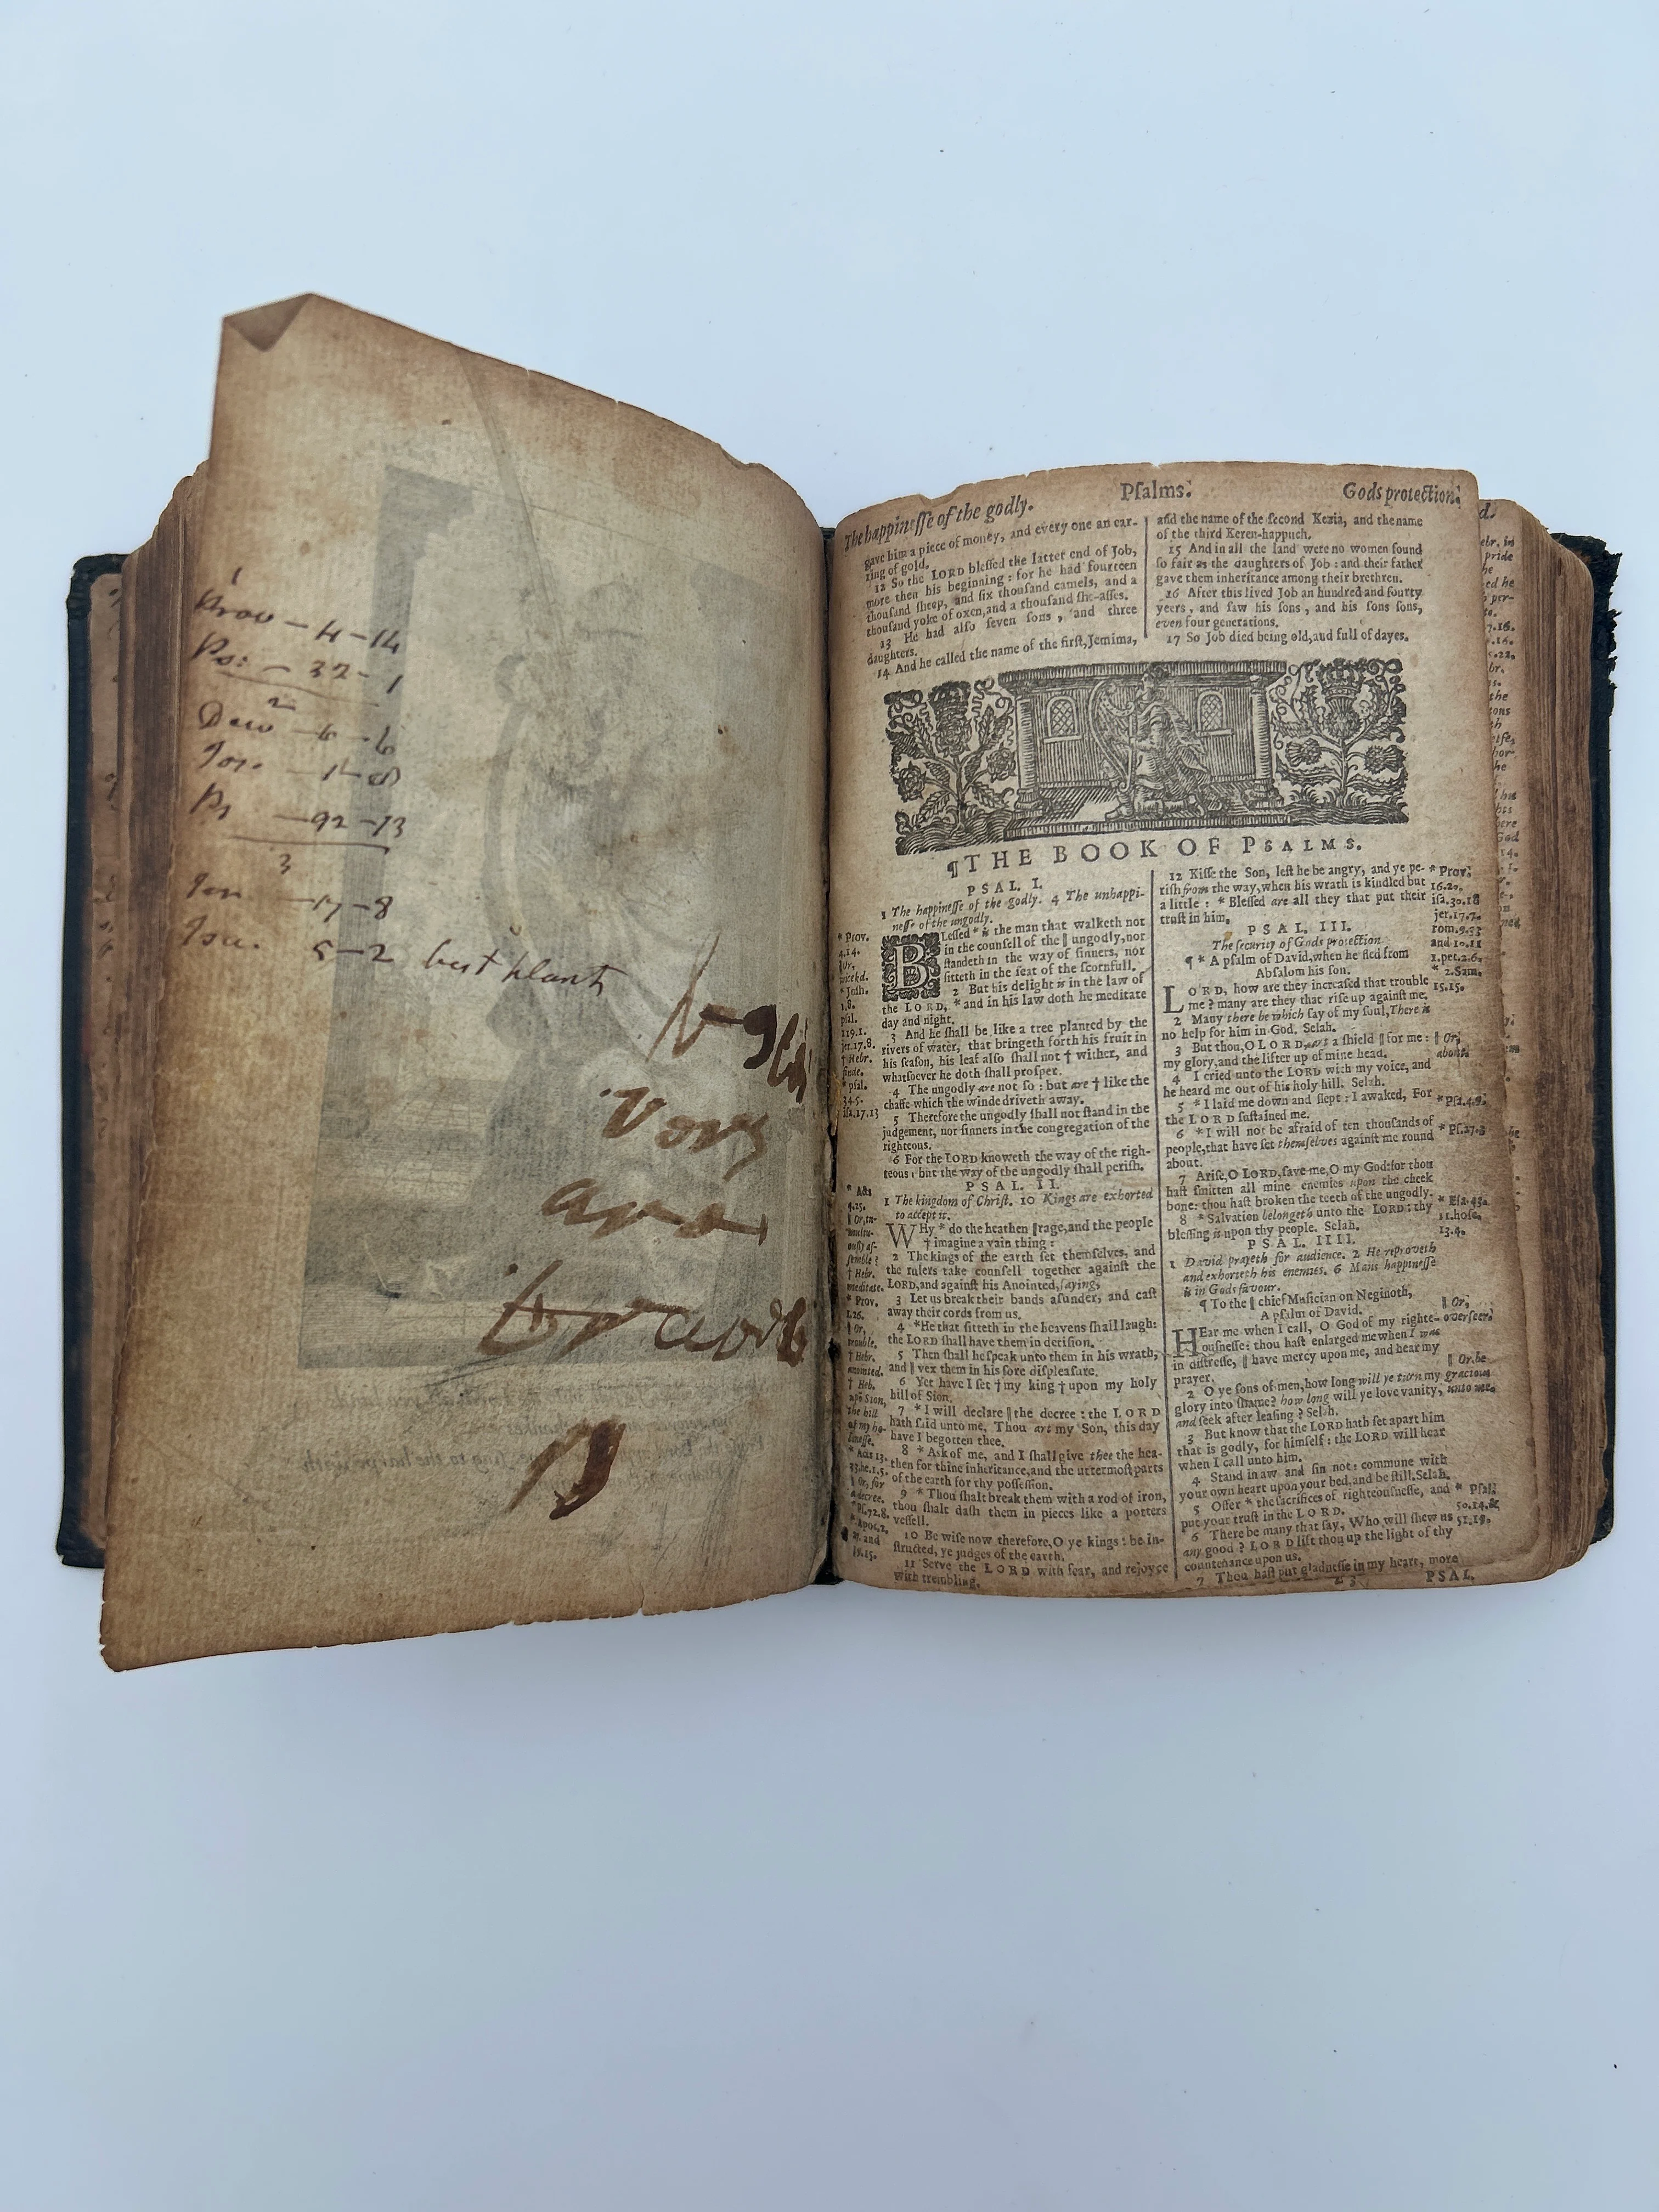 1
Prov – 4 – 14
Ps: – 32 – 1
2
Deu – 6 – 6
Jos. – 1 – 8
Ps – 92 – 13
3
Jer – 17 – 8
Isa. 5 – 2 best plant
very
and
The happinesse of the godly. Pſalms. Gods protection.
gave him a piece of money, and every one an ear-
ring of gold.
12 So the LORD bleſſed the latter end of Job,
more then his beginning: for he had fourteen
thouſand ſheep, and ſix thouſand camels, and a
thouſand yoke of oxen, and a thouſand ſhe-aſſes.
13 He had alſo ſeven ſons, and three
daughters.
14 And he called the name of the firſt, Jemima,
and the name of the ſecond Kezia, and the name
of the third Keren-happuch.
15 And in all the land were no women found
ſo fair as the daughters of Job: and their father
gave them inheritance among their brethren.
16 After this lived Job an hundred and fourty
yeers, and ſaw his ſons, and his ſons ſons,
even four generations.
17 So Job died being old, and full of dayes.
¶ THE BOOK OF PSALMS.
PSAL. I.
1 The happineſſe of the godly. 4 The unhappi-
neſſe of the ungodly.
BLeſſed * is the man that walketh not
in the counſell of the ‖ ungodly, nor
ſtandeth in the way of ſinners, nor
ſitteth in the ſeat of the ſcornfull.
2 But his delight is in the law of
the LORD, * and in his law doth he meditate
day and night.
3 And he ſhall be like a tree planted by the
rivers of water, that bringeth forth his fruit in
his ſeaſon, his leaf alſo ſhall not † wither, and
whatſoever he doth ſhall proſper.
4 The ungodly are not ſo: but are † like the
chaffe which the winde driveth away.
5 Therefore the ungodly ſhall not ſtand in the
judgement, nor ſinners in the congregation of the
righteous.
6 For the LORD knoweth the way of the righ-
teous: but the way of the ungodly ſhall periſh.
PSAL. II.
1 The kingdom of Chriſt. 10 Kings are exhorted
to accept it.
WHy * do the heathen ‖ rage, and the people
† imagine a vain thing:
2 The kings of the earth ſet themſelves, and
the rulers take counſell together againſt the
LORD, and againſt his Anointed, ſaying,
3 Let us break their bands aſunder, and caſt
away their cords from us.
4 * He that ſitteth in the heavens ſhall laugh:
the LORD ſhall have them in deriſion.
5 Then ſhall he ſpeak unto them in his wrath,
and ‖ vex them in his ſore diſpleaſure.
6 Yet have I ſet † my king † upon my holy
hill of Sion.
7 * I will declare ‖ the decree: the LORD
hath ſaid unto me, Thou art my Son, this day
have I begotten thee.
8 * Ask of me, and I ſhall give thee the hea-
then for thine inheritance, and the uttermoſt parts
of the earth for thy poſſeſſion.
9 * Thou ſhalt break them with a rod of iron,
thou ſhalt daſh them in pieces like a potters
veſſell.
10 Be wiſe now therefore, O ye kings: be in-
ſtructed, ye judges of the earth.
11 Serve the LORD with fear, and rejoyce
with trembling.
* Prov.
4.14.
‖ Or,
wicked.
* Joſh.
1.8.
pſal.
119.1.
jer.17.8.
† Hebr.
fade.
* pſal.
34.5.
iſa.17.13
* Acts
4.25.
‖ Or, tu-
multu-
ouſly aſ-
ſemble?
† Hebr.
meditate.
* Prov.
1.26.
‖ Or,
trouble.
† Hebr.
anointed.
† Heb.
upõ Sion,
the hill
of my ho-
lineſſe.
* Acts 13.
33. he.1.5.
‖ Or, for
a decree.
* Pſ.72.8.
* Apoc.2.
27. and
19.15.
12 Kiſſe the Son, leſt he be angry, and ye pe-
riſh from the way, when his wrath is kindled but
a little: * Bleſſed are all they that put their
truſt in him.
PSAL. III.
The ſecurity of Gods protection
¶ * A pſalm of David, when he fled from
Abſalom his ſon.
LORD, how are they increaſed that trouble
me? many are they that riſe up againſt me.
2 Many there be which ſay of my ſoul, There is
no help for him in God. Selah.
3 But thou, O LORD, art a ſhield ‖ for me:
my glory, and the lifter up of mine head.
4 I cried unto the LORD with my voice, and
he heard me out of his holy hill. Selah.
5 * I laid me down and ſlept: I awaked, For
the LORD ſuſtained me.
6 * I will not be afraid of ten thouſands of
people, that have ſet themſelves againſt me round
about.
7 Ariſe, O LORD, ſave me, O my God: for thou
haſt ſmitten all mine enemies upon the cheek
bone: thou haſt broken the teeth of the ungodly.
8 * Salvation belongeth unto the LORD: thy
bleſſing is upon thy people. Selah.
PSAL. IIII.
1 David prayeth for audience. 2 He reproveth
and exhorteth his enemies. 6 Mans happineſſe
is in Gods favour.
¶ To the ‖ chief Muſician on Neginoth,
A pſalm of David.
HEar me when I call, O God of my righte-
ouſneſſe: thou haſt enlarged me when I was
in diſtreſſe, ‖ have mercy upon me, and hear my
prayer.
2 O ye ſons of men, how long will ye turn my
glory into ſhame? how long will ye love vanity,
and ſeek after leaſing? Selah.
3 But know that the LORD hath ſet apart him
that is godly, for himſelf: the LORD will hear
when I call unto him.
4 Stand in aw and ſin not: commune with
your own heart upon your bed, and be ſtill. Selah.
5 Offer * the ſacrifices of righteouſneſſe, and
put your truſt in the LORD.
6 There be many that ſay, Who will ſhew us
any good? LORD lift thou up the light of thy
countenance upon us.
7 Thou haſt put gladneſſe in my heart, more
PSAL.
* Prov.
16.20.
iſa.30.18
jer.17.7.
rom.9.33
and 10.11
1.pet.2.6.
* 2.Sam.
15.15.
‖ Or,
about.
* Pſa.4.9.
* Pſ.27.3
* Eſa.43.
11.hoſe.
13.4.
‖ Or,
overſeer.
‖ Or, be
gracious
unto me.
* Pſal.
50.14.&
51.19.